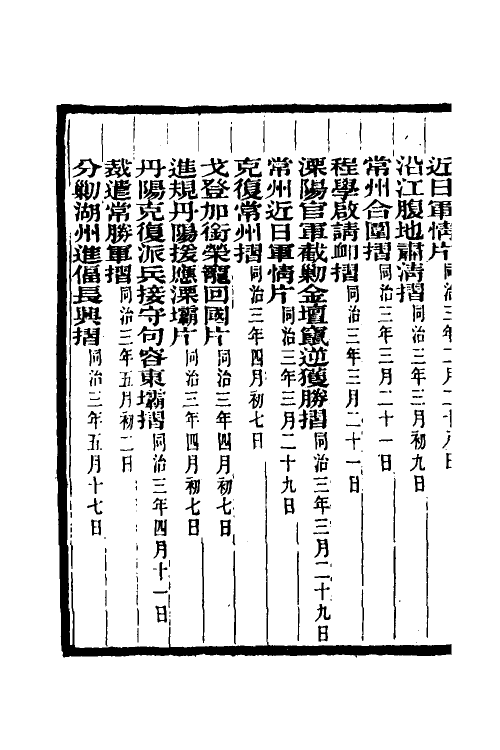 近日軍情片同治三年二月二十八日
沿江腹地肅清摺同治三年三月初九日
常州合圍摺同治三年三月二十一日
程學啟請卹摺同治三年三月二十一日
溧陽官軍截勦金壇竄逆獲勝摺同治三年三月二十九日
常州近日軍情片同治三年三月二十九日
克復常州摺同治三年四月初七日
戈登加銜榮寵回國片同治三年四月初七日
進規丹陽援應溧壩片同治三年四月初七日
丹陽克復派兵接守句容東壩摺同治三年四月十一日
裁遣常勝軍摺同治三年五月初二日
分勦湖州進偪長興摺同治三年五月十七日